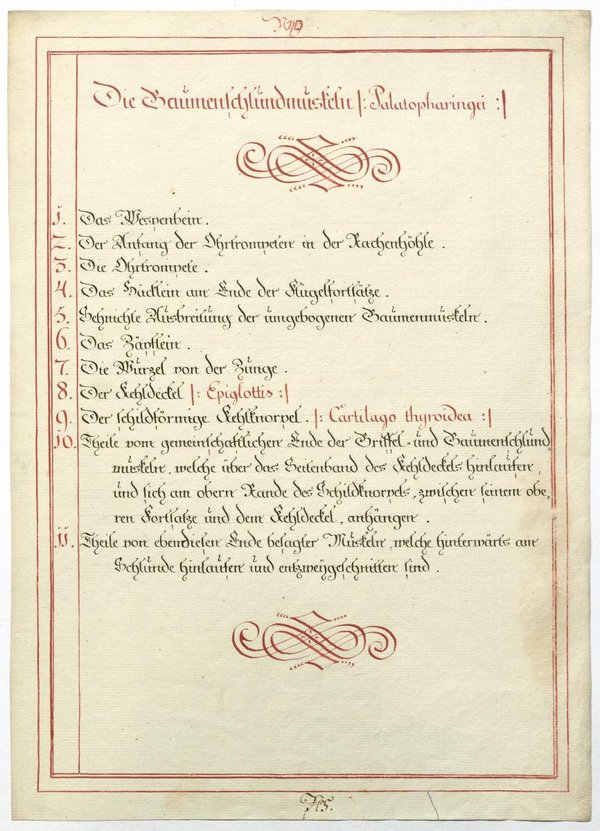 Die Gaumenschlundmuskeln |: Palatopharingei :|
1. Das Wespenbein.
2. Der Anfang der Ohrtrompeten in der Rachenhöhle.
3. Die Ohrtrompete.
4. Das Häcklein am Ende der Flügelfortsätze.
5. Sehnichte Ausbreitung der umgebogenen Gaumenmuskeln.
6. Das Zäpflein.
7. Die Wurzel von der Zunge.
8. Der Kehldeckel |: Epiglottis :|
9. Der schildförmige Kehlknorpel. |: Cartilago thyroidea :|
10. Theile vom gemeinschaftlichen Ende der Griffel- und Gaumenschlund
muskeln, welche über das Seitenband des Kehldeckels hinlaufen,
und sich am obern Rande des Schildknorpels, zwischen seinem obe,
ren Fortsatze und dem Kehldeckel, anhängen.
11. Theile von ebendiesen Ende besagter Muskeln, welche hinterwärts am
Schlunde hinlaufen und entzweygeschnitten sind.